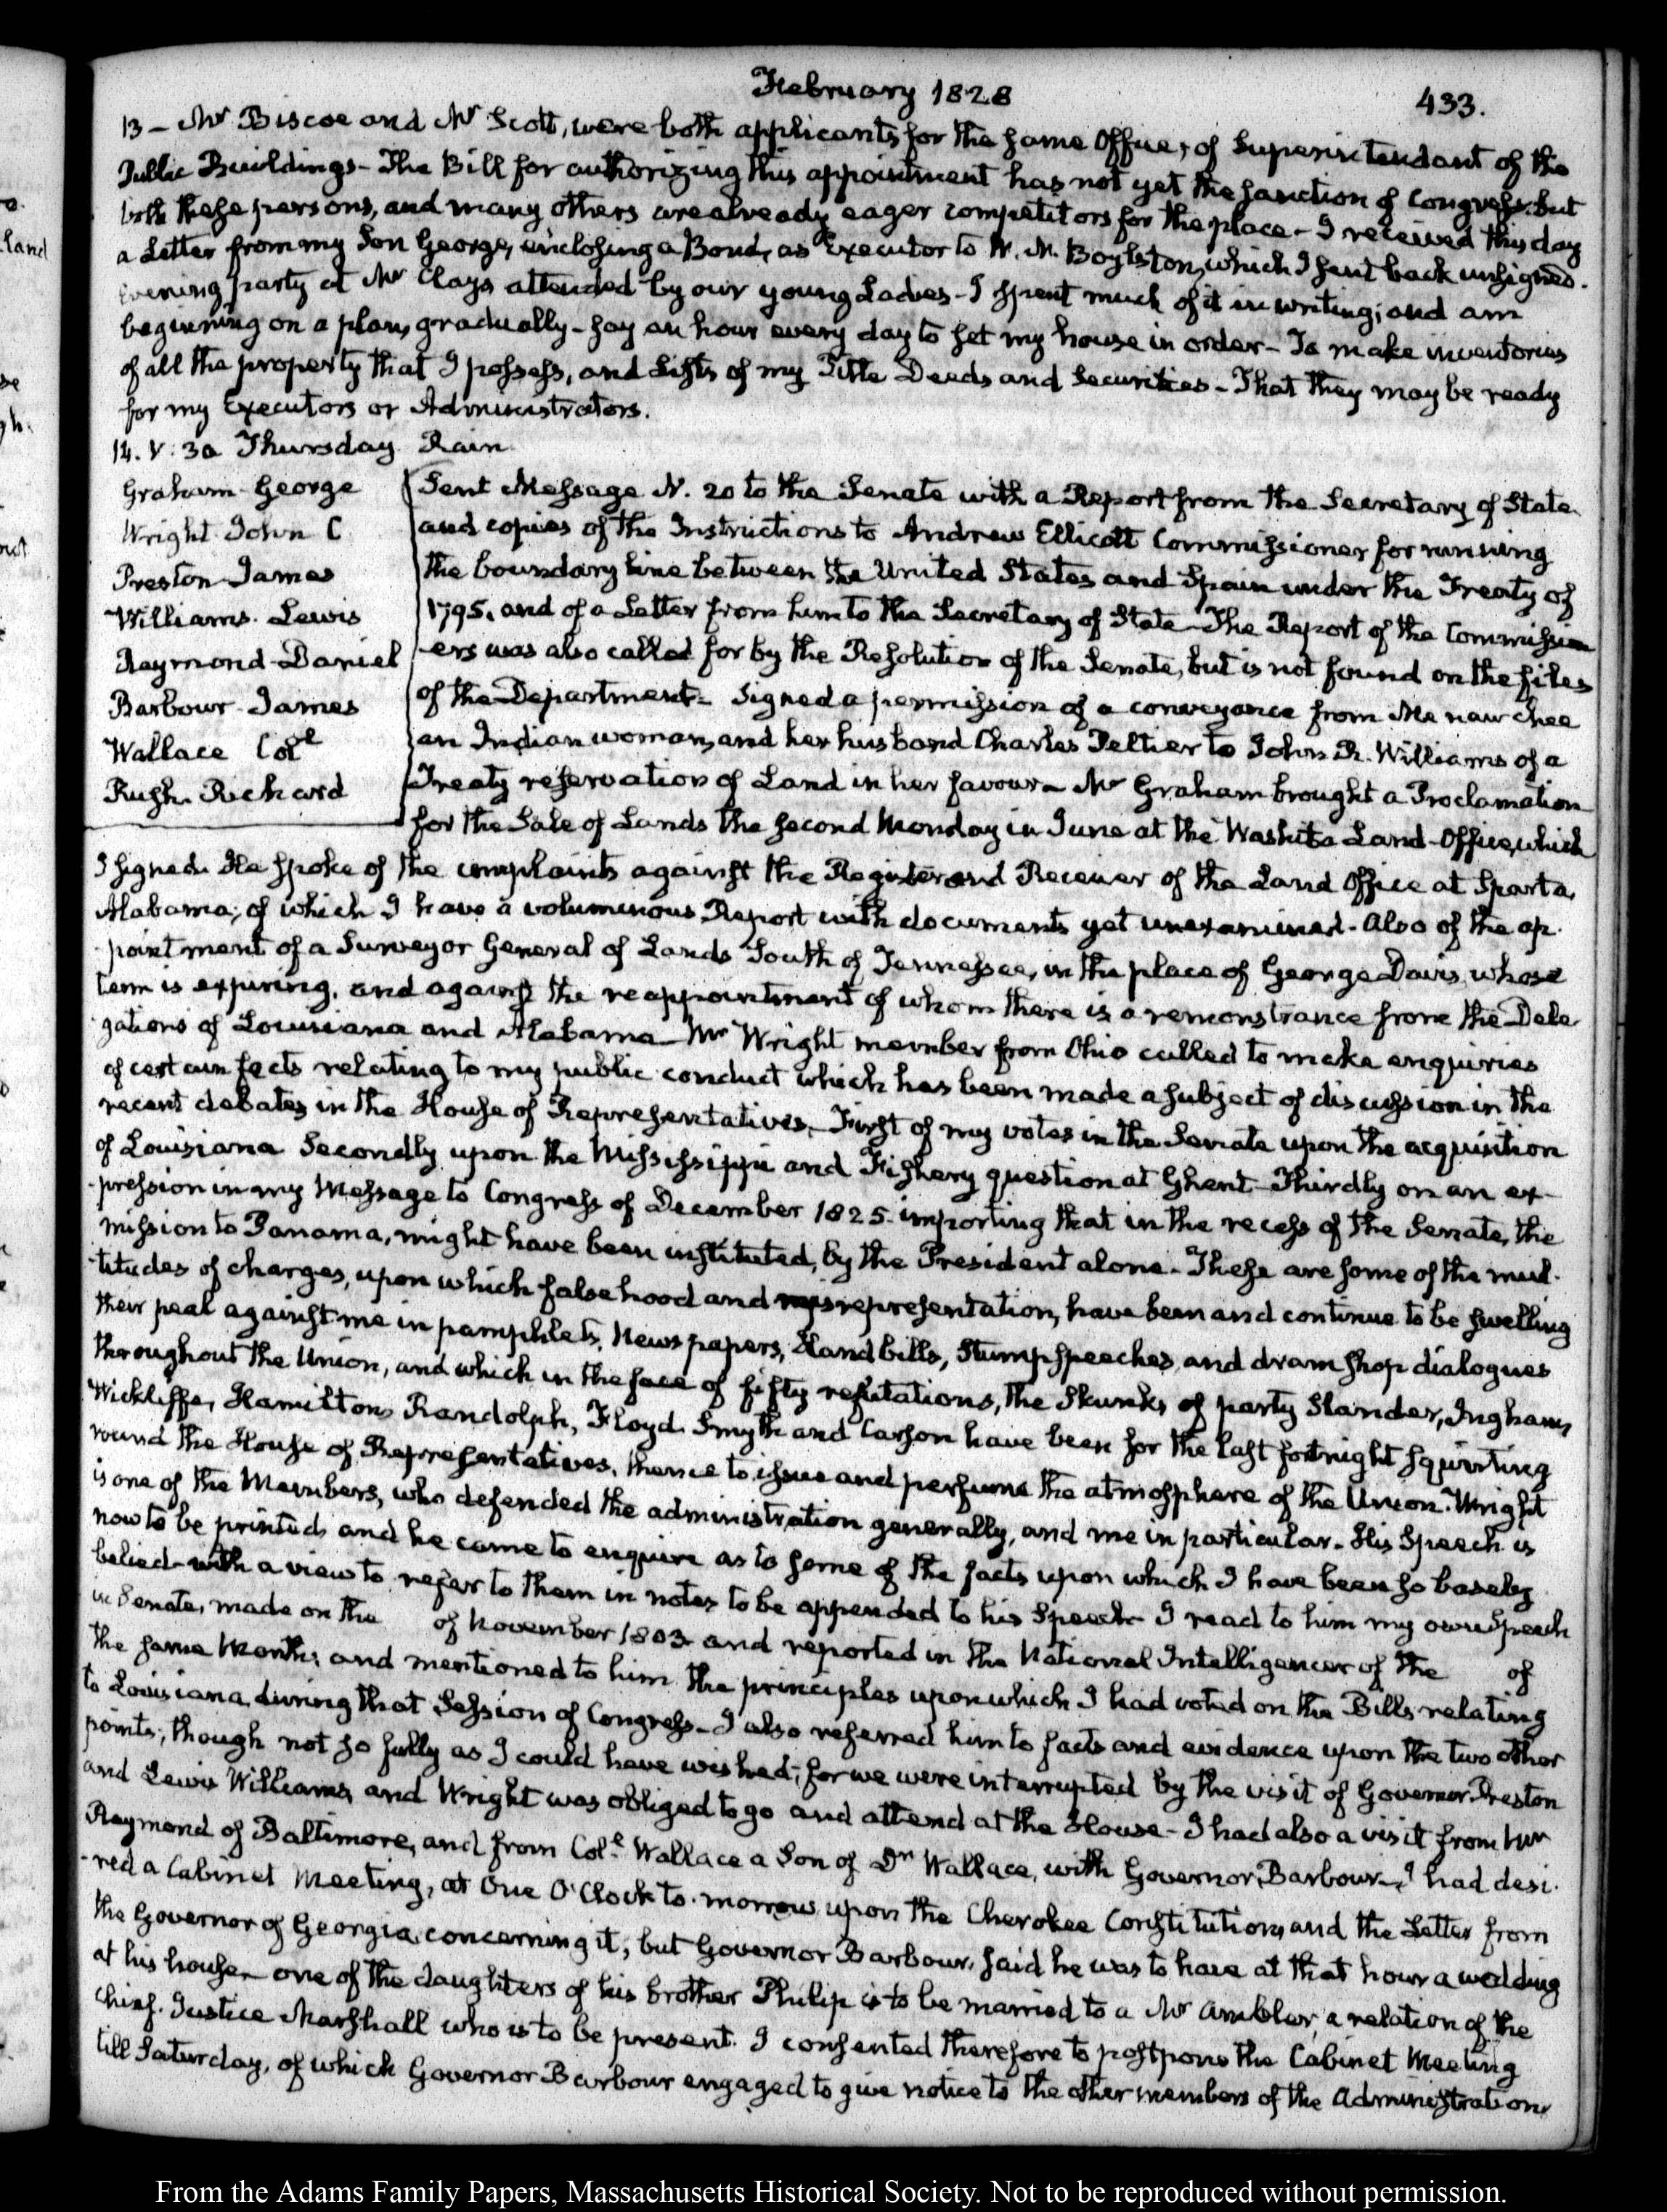 February 1828
433.
13 – Mr Biscoe and Mr Scott, were both applicants for the same Office, of Superintendant of the
Public Buildings – The Bill for authorizing this appointment has not yet the sanction of Congress, but
both these persons, and many others are already eager competitors for the place – I received this day
a Letter from my Son George, enclosing a Bond, as Executor to W. N. Boylston, which I sent back unsigned.
Evening party at Mr Clays attended by our young Ladies – I spent much of it in writing; and am
beginning on a plan, gradually – say an hour every day to set my house in order – To make inventories
of all the property that I possess, and Lists of my Title Deeds and Securities – That they may be ready
for my Executors or Administrators.
14. V: 30 Thursday Rain
Graham George
Wright John C
Preston James
Williams Lewis
Raymond Daniel
Barbour James
Wallace Col
Rush Richard
Sent Message N. 20 to the Senate with a Report from the Secretary of State
and copies of the Instructions to Andrew Ellicott Commissioner for running
the boundary line between the United States and Spain under the Treaty of
1795. and of a Letter from him to the Secretary of State – The Report of the Commission
-ers was also called for by the Resolution of the Senate, but is not found on the files
of the Department – Signed a permission of a conveyance from Me naw chee
an Indian woman, and her husband Charles Peltier to John R. Williams of a
Treaty reservation of Land in her favour – Mr Graham brought a Proclamation
for the Sale of Lands the second Monday in June at the Washita Land-Office, which
I signed. He spoke of the complaints against the Register and Receiver of the Land Office at Sparta,
Alabama; of which I have a voluminous Report with documents yet unexamined – Also of the ap-
pointment of a Surveyor General of Lands South of Tennessee, in the place of George Davis, whose
term is expiring, and against the reappointment of whom there is a remonstrance from the Dele-
gations of Louisiana and Alabama – Mr Wright member from Ohio called to make enquiries
of certain facts relating to my public conduct which has been made a subject of discussion in the
recent debates in the House of Representatives – First of my votes in the Senate upon the acquisition
of Louisiana Secondly upon the Mississippi and Fishery question at Ghent – Thirdly on an ex-
-pression in my Message to Congress of December 1825. importing that in the recess of the Senate, the
mission to Panama, might have been instituted, by the President alone – These are some of the mul-
-titudes of charges, upon which falsehood and misrepresentation, have been and continue to be swelling
their peal against me in pamphlets, Newspapers, Handbills, Stump speeches, and dramshop dialogues
throughout the Union, and which in the face of fifty refutations, the Skunks of party Slander, Ingham,
Wickliffe, Hamilton, Randolph, Floyd, Smyth and Carson have been for the last fortnight squirting
round the House of Representatives, thence to issue and perfume the atmosphere of the Union. Wright
is one of the Members, who defended the administration generally, and me in particular – His Speech is
now to be printed, and he came to enquire as to some of the facts upon which I have been so basely
belied – with a view to refer to them in notes to be appended to his Speech – I read to him my own Speech
in Senate, made on the of November 1803 and reported in the National Intelligencer of the of
the same Month; and mentioned to him the principles upon which I had voted on the Bills relating
to Louisiana, during that Session of Congress – I also referred him to facts and evidence upon the two other
points; though not so fully as I could have wished; for we were interrupted by the visit of Governor Preston
and Lewis Williams, and Wright was obliged to go and attend at the House – I had also a visit from Mr
Raymond of Baltimore, and from Col. Wallace a Son of Dr Wallace, with Governor Barbour – I had desi-
-red a Cabinet Meeting, at One O'Clock to-morrow upon the Cherokee Constitution, and the Letter from
the Governor of Georgia concerning it; but Governor Barbour, said he was to have at that hour a wedding
at his house – one of the daughters of his brother Philip is to be married to a Mr Ambler, a relation of the
Chief-Justice Marshall who is to be present. I consented therefore to postpone the Cabinet Meeting
till Saturday, of which Governor Barbour engaged to give notice to the other members of the Administration
From the Adams Family Papers, Massachusetts Historical Society. Not to be reproduced without permission.